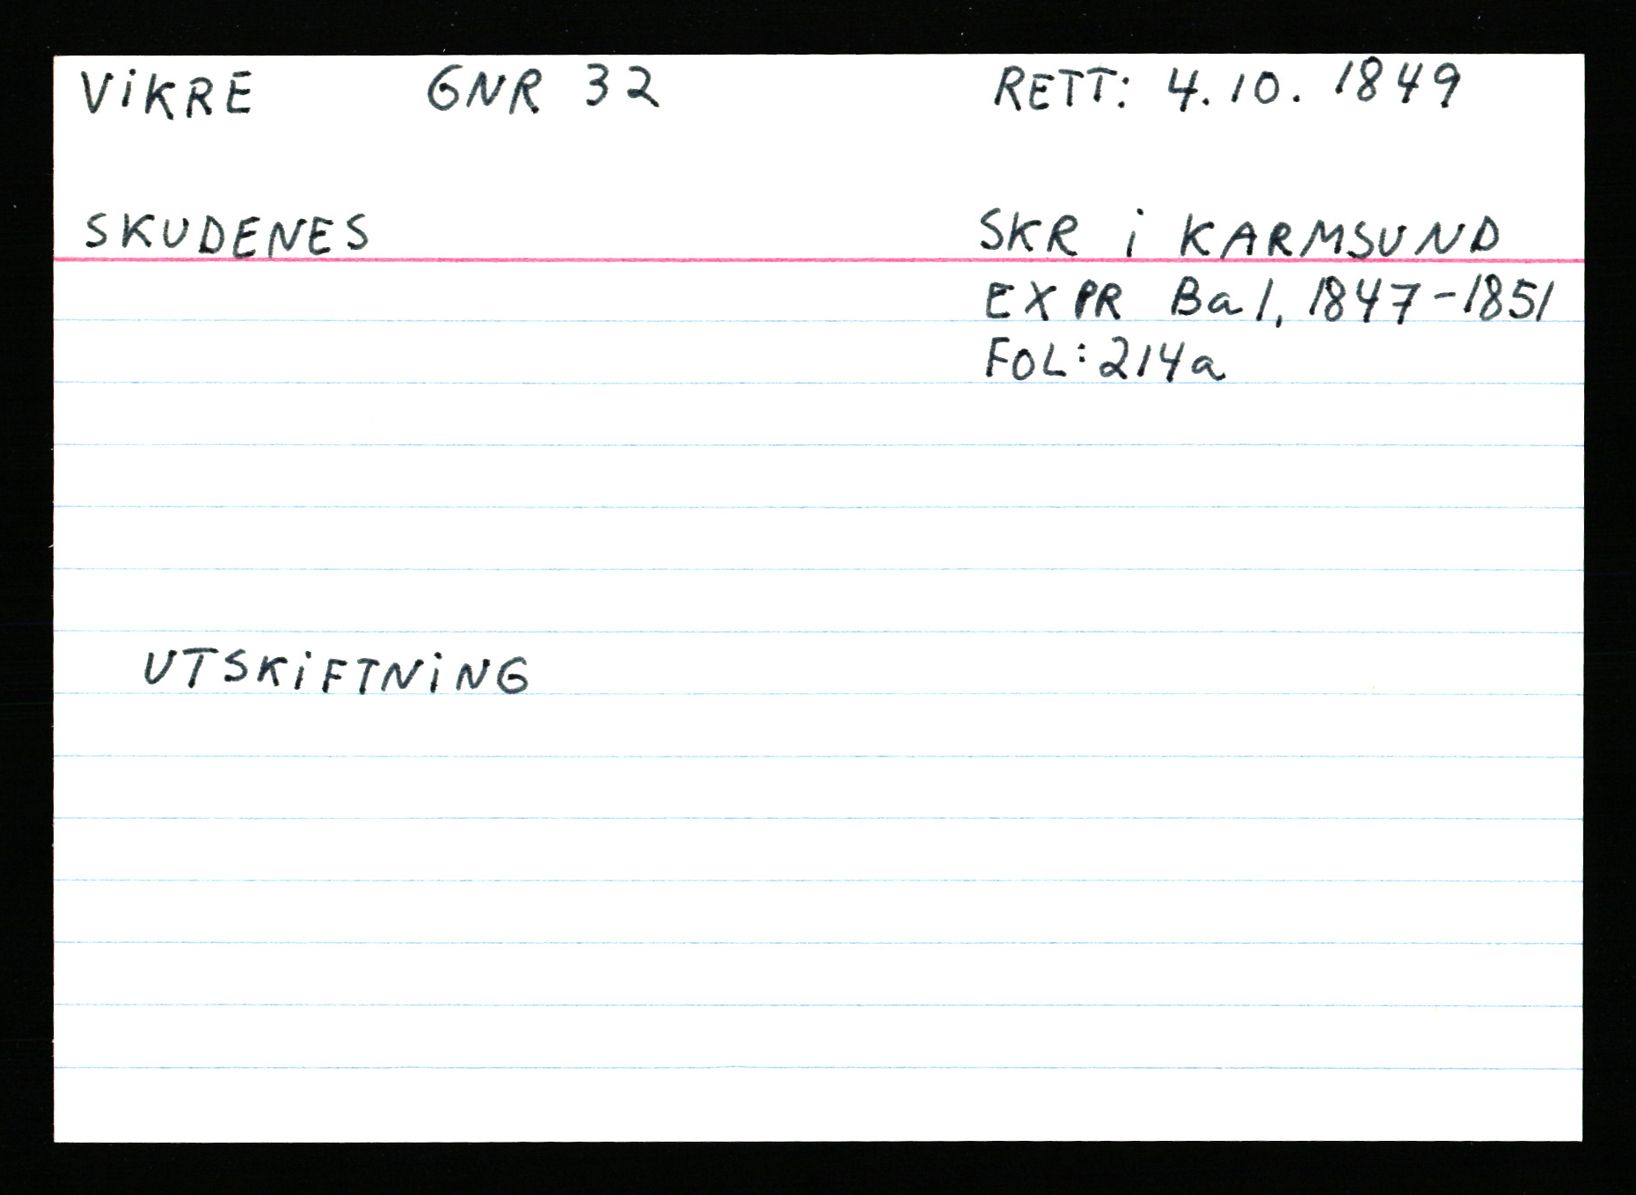 ViKRE GNR 32 RETT: 4.10. 1849
SKUDENES SKR i KARMSUND
EXPR Ba 1, 1847-1851
FOL: 214a
UTSKiFTNiNG